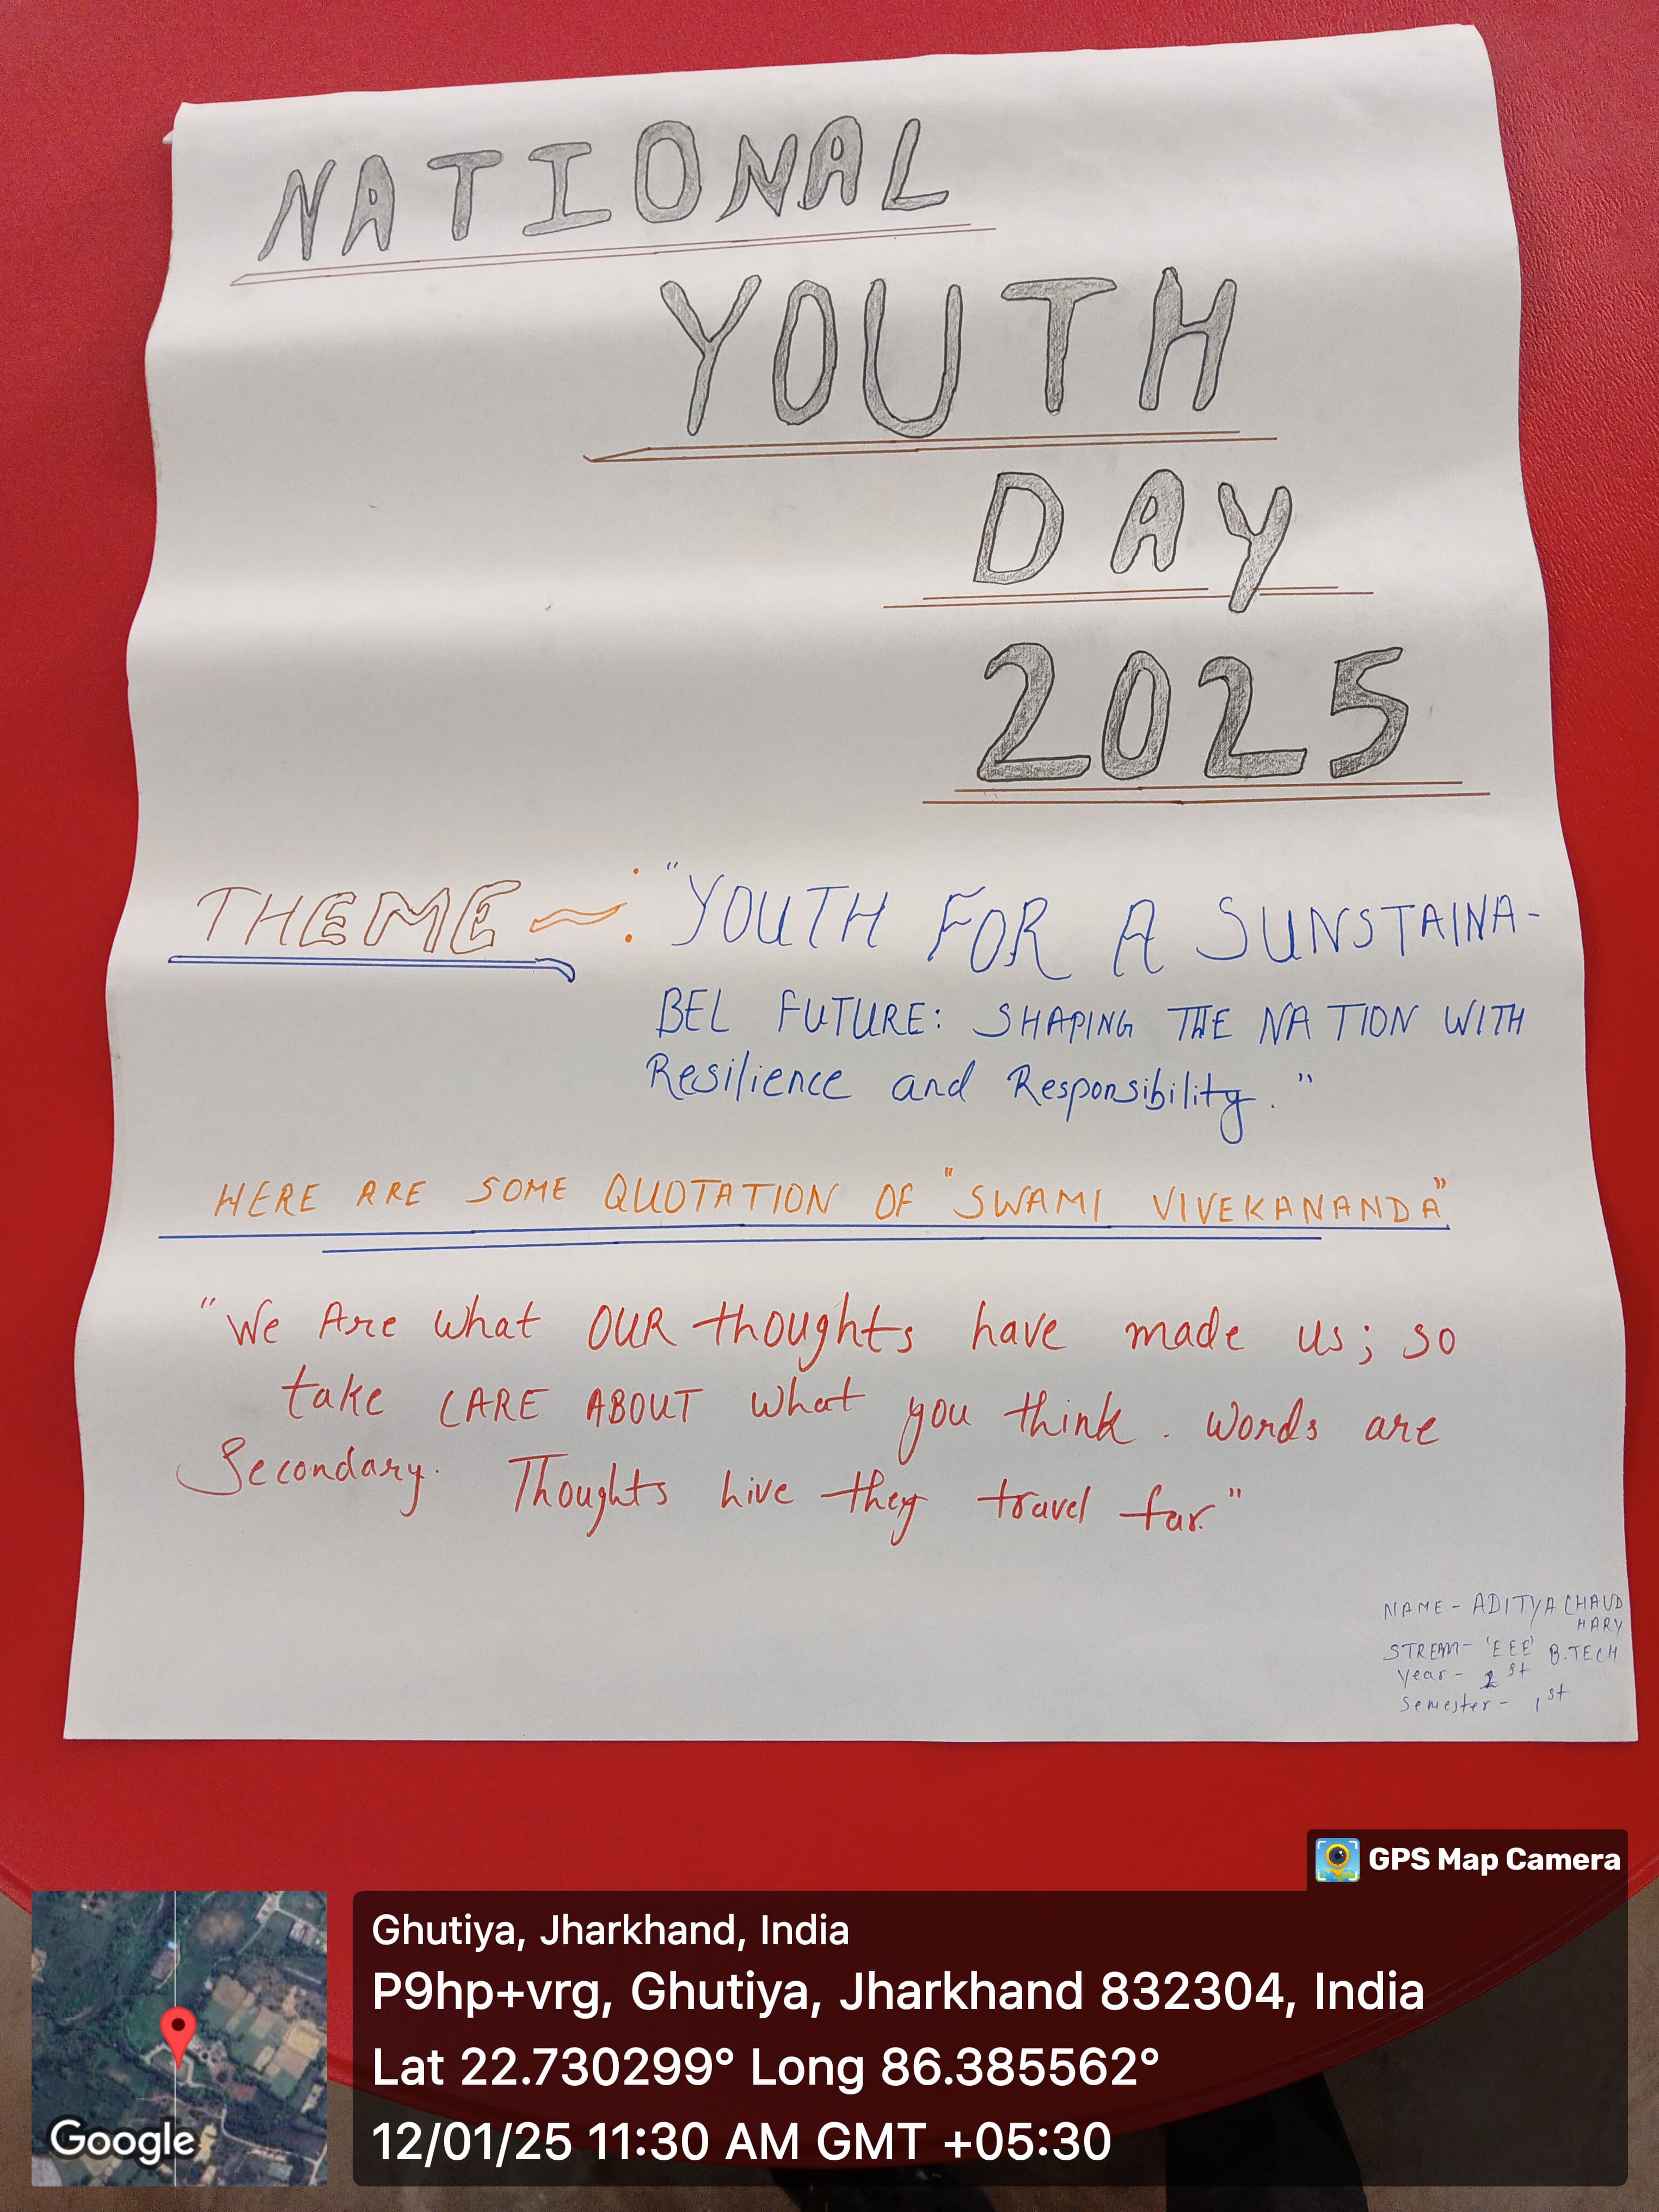 NATIONAL
YOUTH
DAY
2025
THEME ~: "YOUTH FOR A SUNSTAINA-
BEL FUTURE: SHAPING THE NATION WITH
Resilience and Responsibility."
HERE ARE SOME QUOTATION OF "SWAMI VIVEKANANDA"
"We Are what OUR thoughts have made us; so
take CARE ABOUT what you think. words are
Secondary. Thoughts live they travel far."
NAME - ADITYA CHAUD
HARY
STREAM - 'EEE' B.TECH
Year - 1st
Semester - 1st
GPS Map Camera
Ghutiya, Jharkhand, India
P9hp+vrg, Ghutiya, Jharkhand 832304, India
Lat 22.730299° Long 86.385562°
12/01/25 11:30 AM GMT +05:30
Google